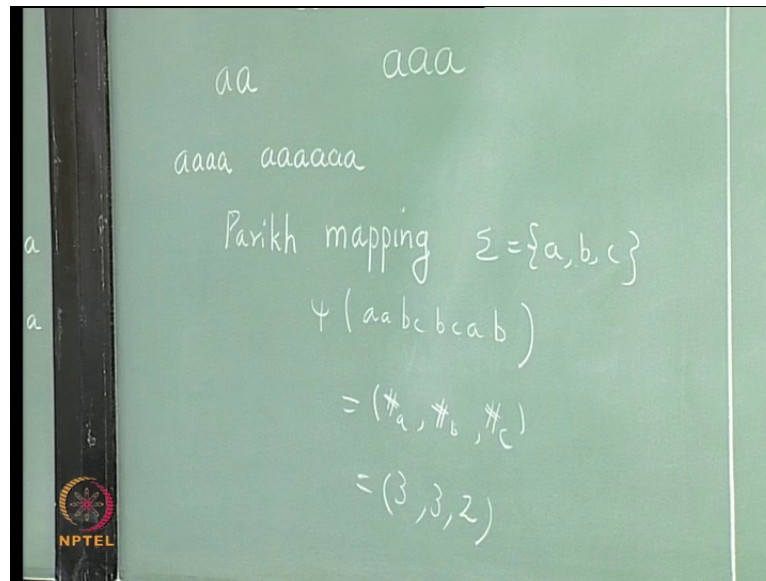 aa aaa
aaaa aaaaaa
Parikh mapping Σ = {a, b, c}
a
ψ (aabcbcab)
a
= (#a, #b, #c)
= (3, 3, 2)
NPTEL